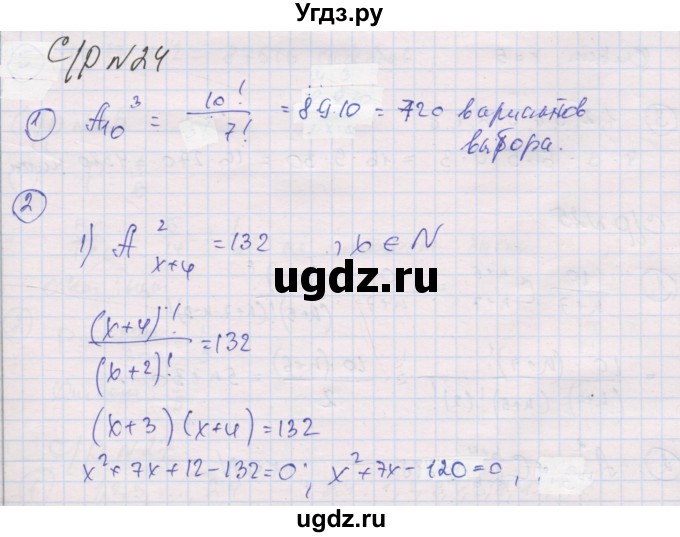 Угдз.ру
С/Р N24
1) A₁₀³ = 10!/7! = 8·9·10 = 720 вариантов
выбора.
2)
1) A²ₓ₊₄ = 132, x ∈ N
ugdz.ru
(x+4)!/(x+2)! = 132
(x+3)(x+4) = 132
x²+7x+12-132=0; x²+7x-120=0,
ugdz.ru